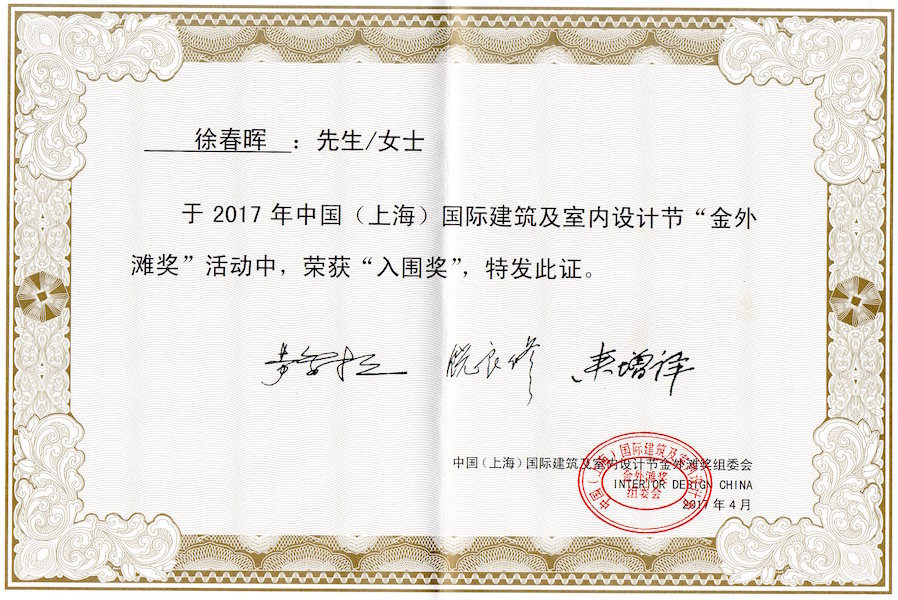 徐春晖 ：先生/女士
于 2017 年中国（上海）国际建筑及室内设计节“金外
滩奖”活动中，荣获“入围奖”，特发此证。
中国（上海）国际建筑及室内设计节金外滩奖组委会
INTERIOR DESIGN CHINA
2017 年 4 月
中国（上海）国际建筑及室内设计节
金外滩奖
组委会